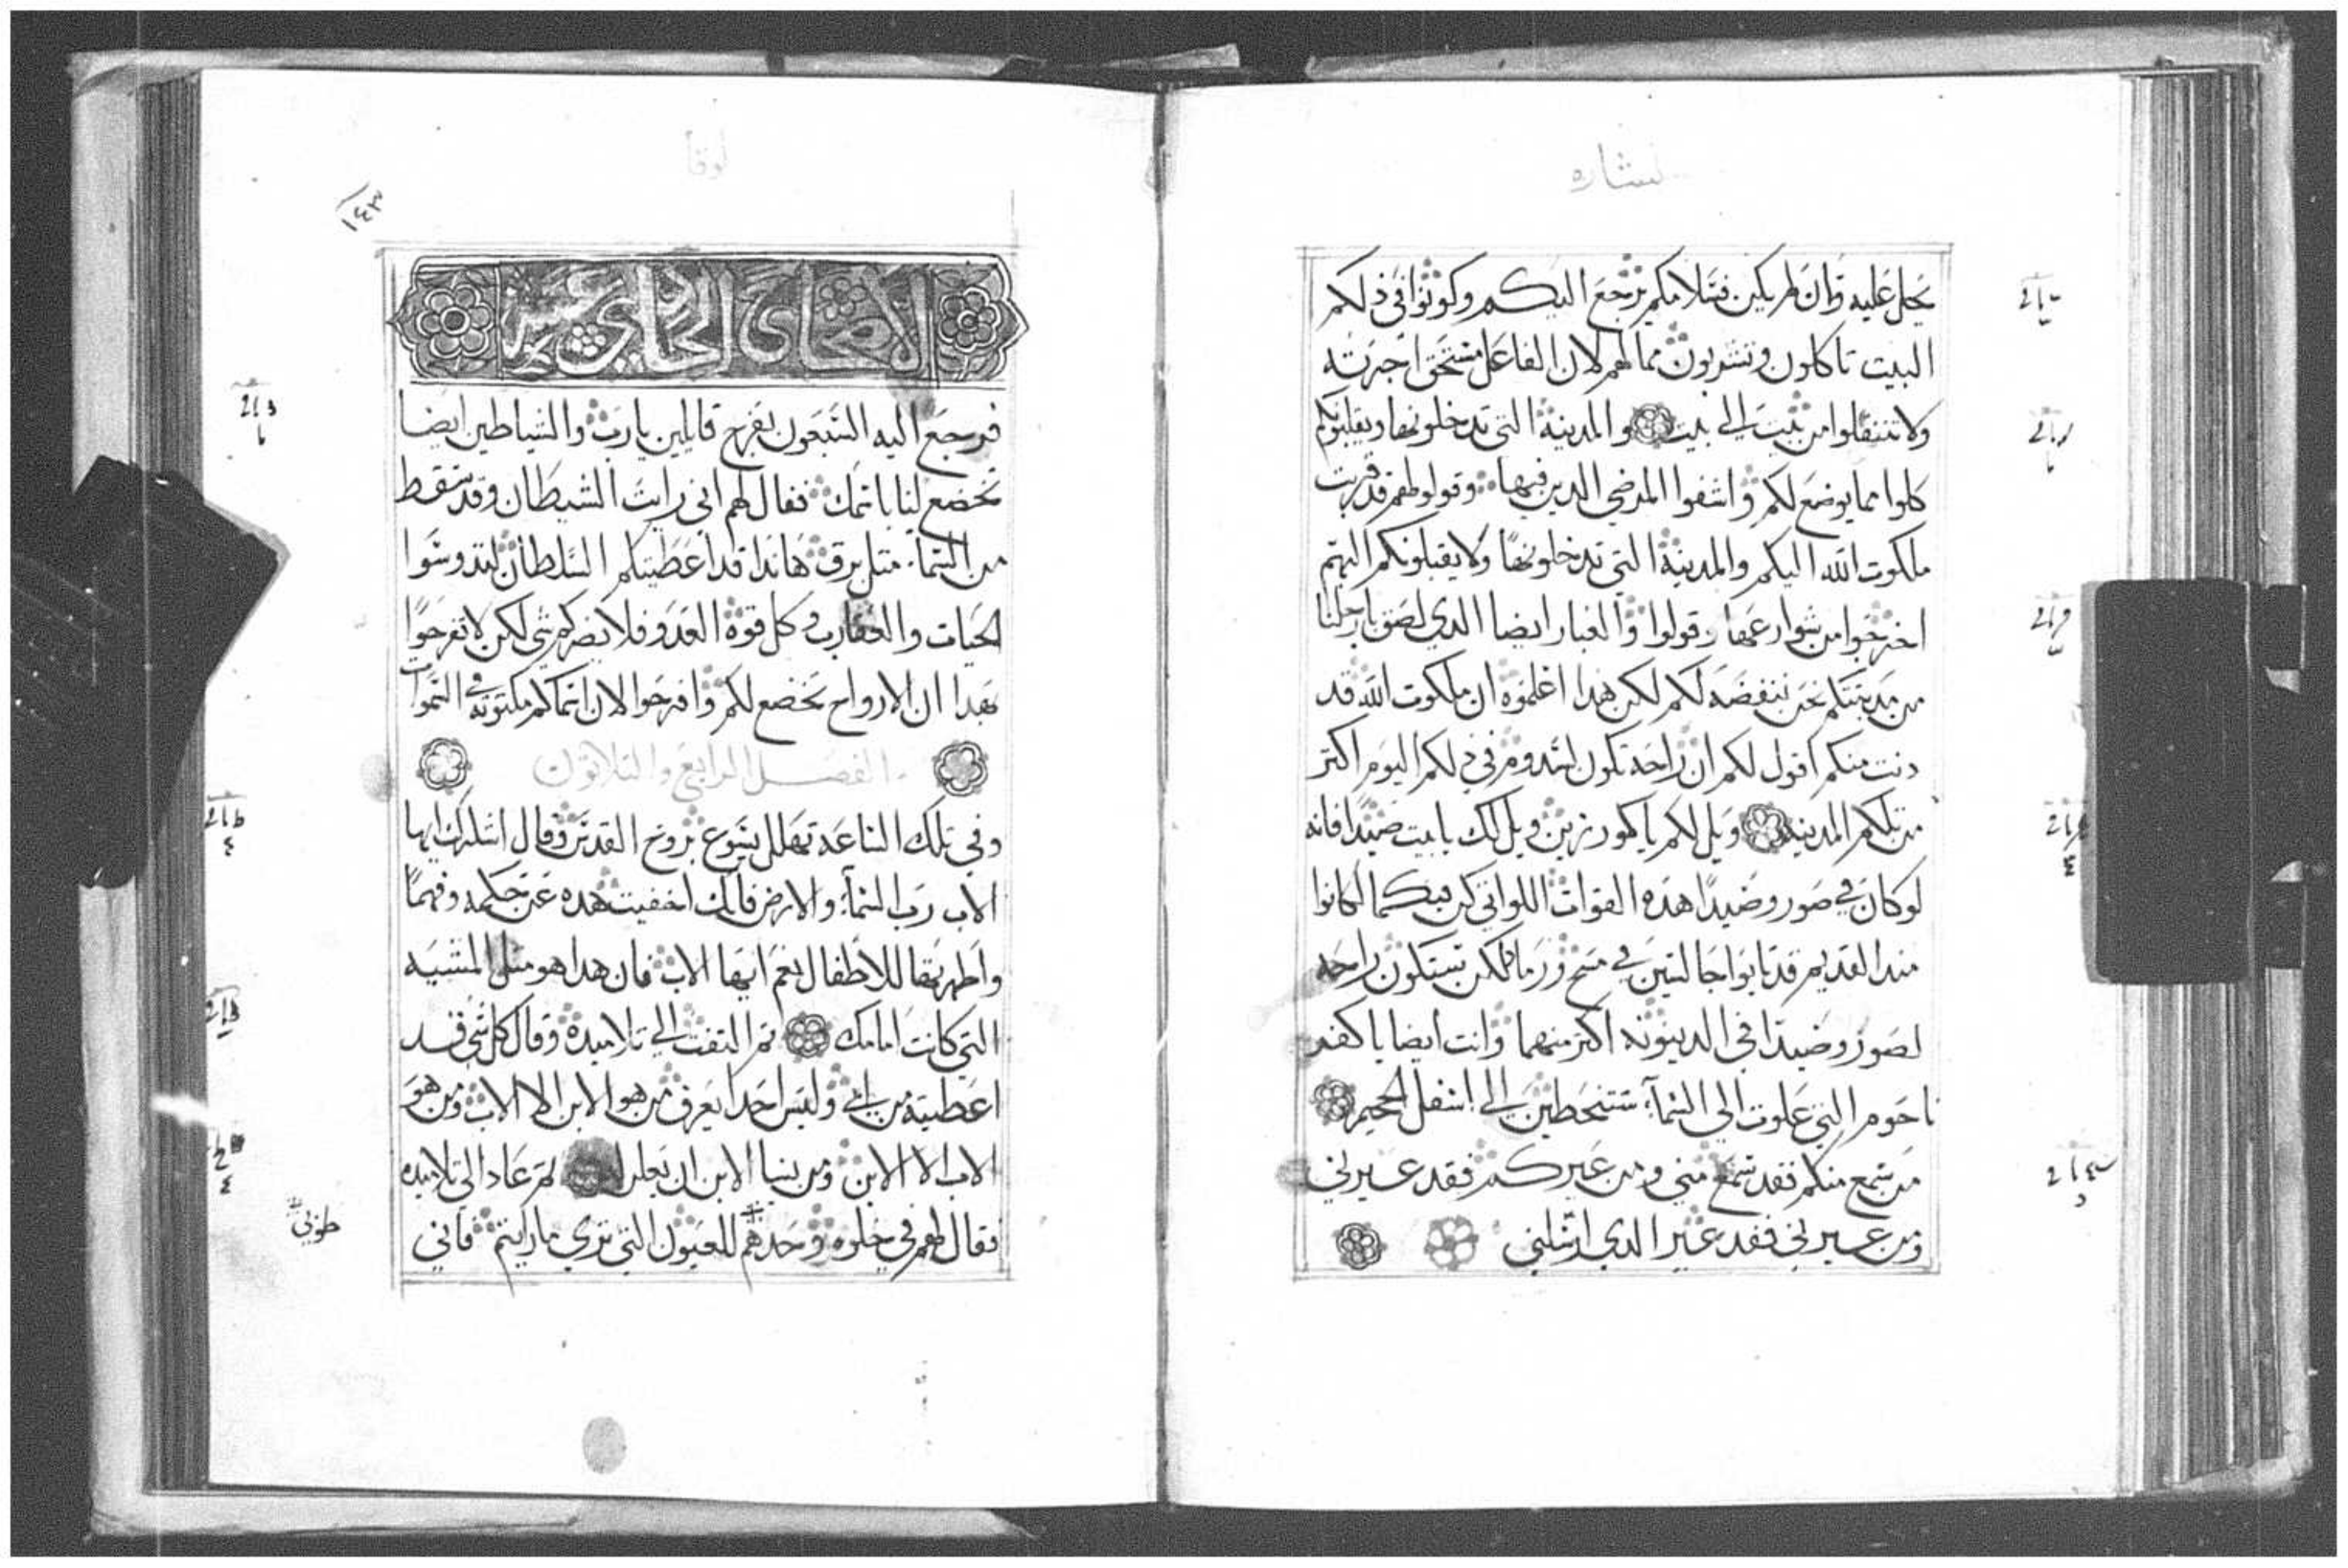 لبشاره
يحل عليه وان لم يكن فسلامكم يرجع اليكم وكونوا في ذلكم
البيت تاكلون وتشربون مما لهم لان الفاعل مستحق اجرته
ولا تنتقلوا من بيت الى بيت والمدينة التي تدخلونها ويقبلونكم
كلوا مما يوضع لكم واشفوا المرضي الدين فيها وقولوا لهم قد قربت
ملكوت الله اليكم والمدينة التي تدخلونها ولا يقبلونكم اليهم
اخرجوا من شوارعها وقولوا والغبار ايضا الدي لصق بارجلنا
من مدينتكم نحن ننفضه لكم لكن هدا اعلموه ان ملكوت الله قد
دنت منكم اقول لكم ان راحة تكون لسدوم في دلكم اليوم اكتر
من تلكم المدينة ويل لكم يا كورزين ويل لك يا بيت صيدا فانه
لو كان في صور وصيدا هده القوات اللواتي كن فيكما لكانوا
مند القديم قد تابوا جالسين في مسح ورماد لكن ستكون راحه
لصور وصيدا في الدينونه اكتر منهما وانت ايضا يا كفر
ناحوم التي علوت الى السماء ستنحطين الى اسفل الجحيم
من سمع منكم فقد سمع مني ومن عيركم فقد عيرني
ومن عيرني فقد عير الدي ارسلني
لوقا
١٤٣
الاصحاح الحادي عشر
فرجع اليه السبعون بفرح قايلين يا رب والشياطين ايضا
تخضع لنا باسمك فقال لهم اني رايت الشيطان وقد سقط
من السماء متل برق هاندا قد اعطيتكم السلطان لتدوسوا
الحيات والعقارب وكل قوة العدو فلا يضركم شي لكن لا تفرحوا
بهدا ان الارواح تخضع لكم وافرحوا لان اسماكم مكتوبة في السموات
الفصل الرابع والتلاتون
وفي تلك الساعة تهلل يسوع بروح القدس وقال اشكرك ايها
الاب رب السماء والارض فانك اخفيت هده عن حكمه وفهما
واطهرتها للاطفال نعم ايها الاب فان هدا هو متل المشيه
التي كانت امامك تم التفت الى تلاميده وقال كل شي قد
اعطيته من ابي وليس احدا يعرف من هو الابن الا الاب ومن هو
الاب الا الابن ومن يشا الابن ان يعلن له تم عاد الى تلاميده
فقال لهم في خلوه وحدهم للعيون التي تري ما رايتم فاني
طوبى